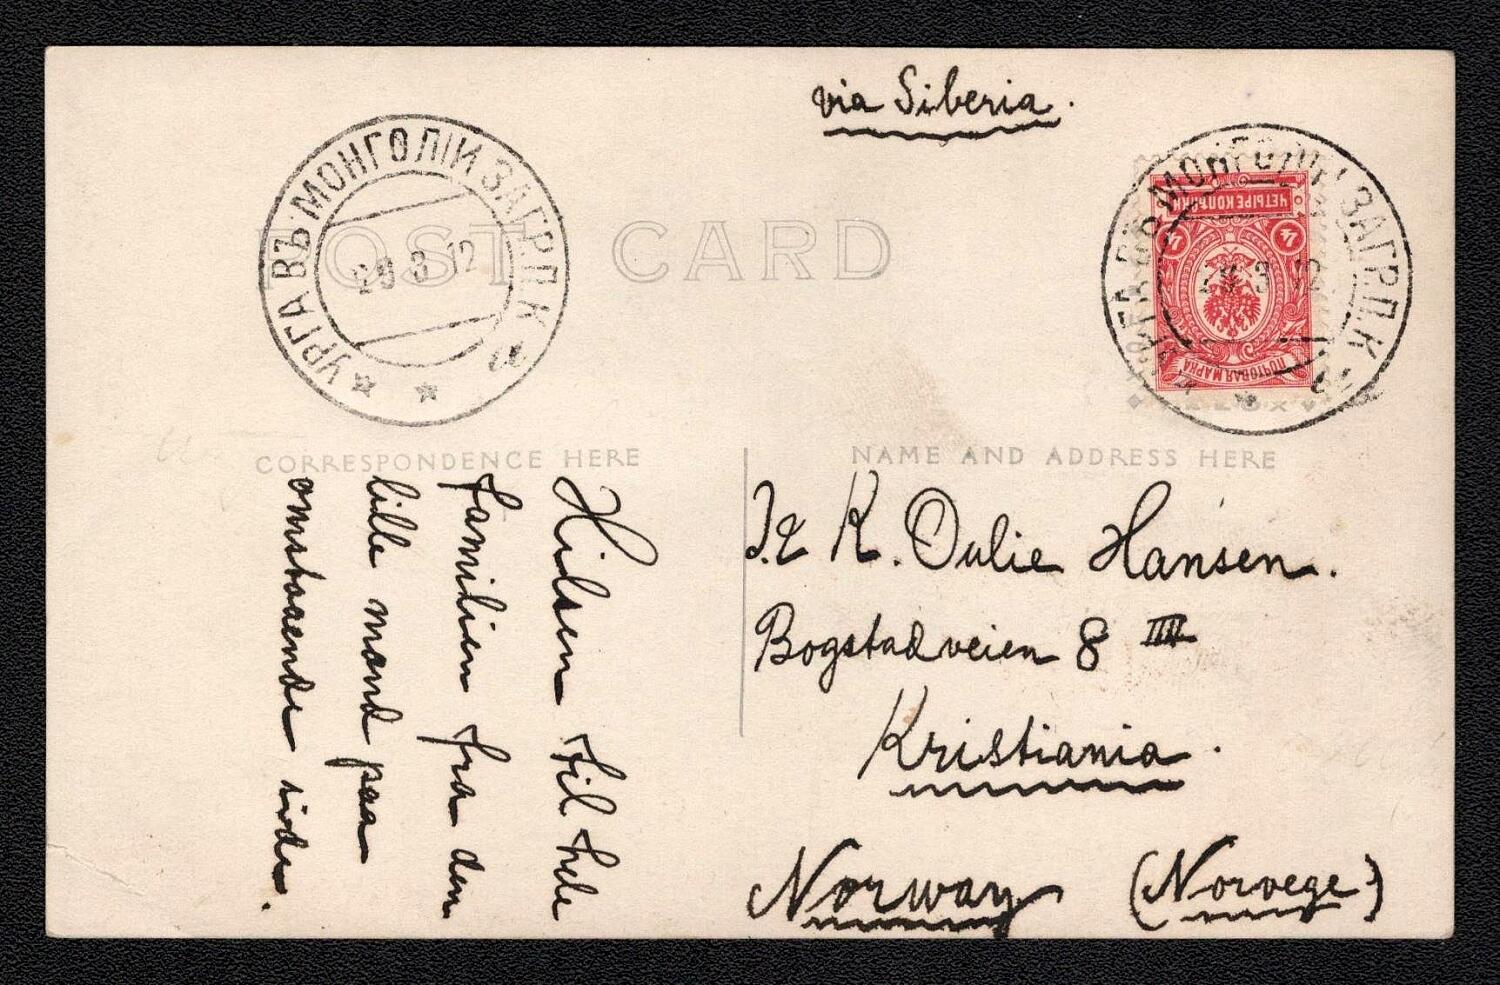 via Siberia.
УРГА ВЪ МОНГОЛІИ ЗАГР.П.К.
28 3 12
a
POST CARD
УРГА ВЪ МОНГОЛІИ ЗАГР.П.К.
3 12
ЧЕТЫРЕ КОПѢЙКИ
4 4
ПОЧТОВАЯ МАРКА
CORRESPONDENCE HERE
Hilsen til hele
familien fra den
lille mand paa
omstaaende side.
NAME AND ADDRESS HERE
K. Oulie Hansen.
Bogstadveien 8 III
Kristiania.
Norway (Norvege)